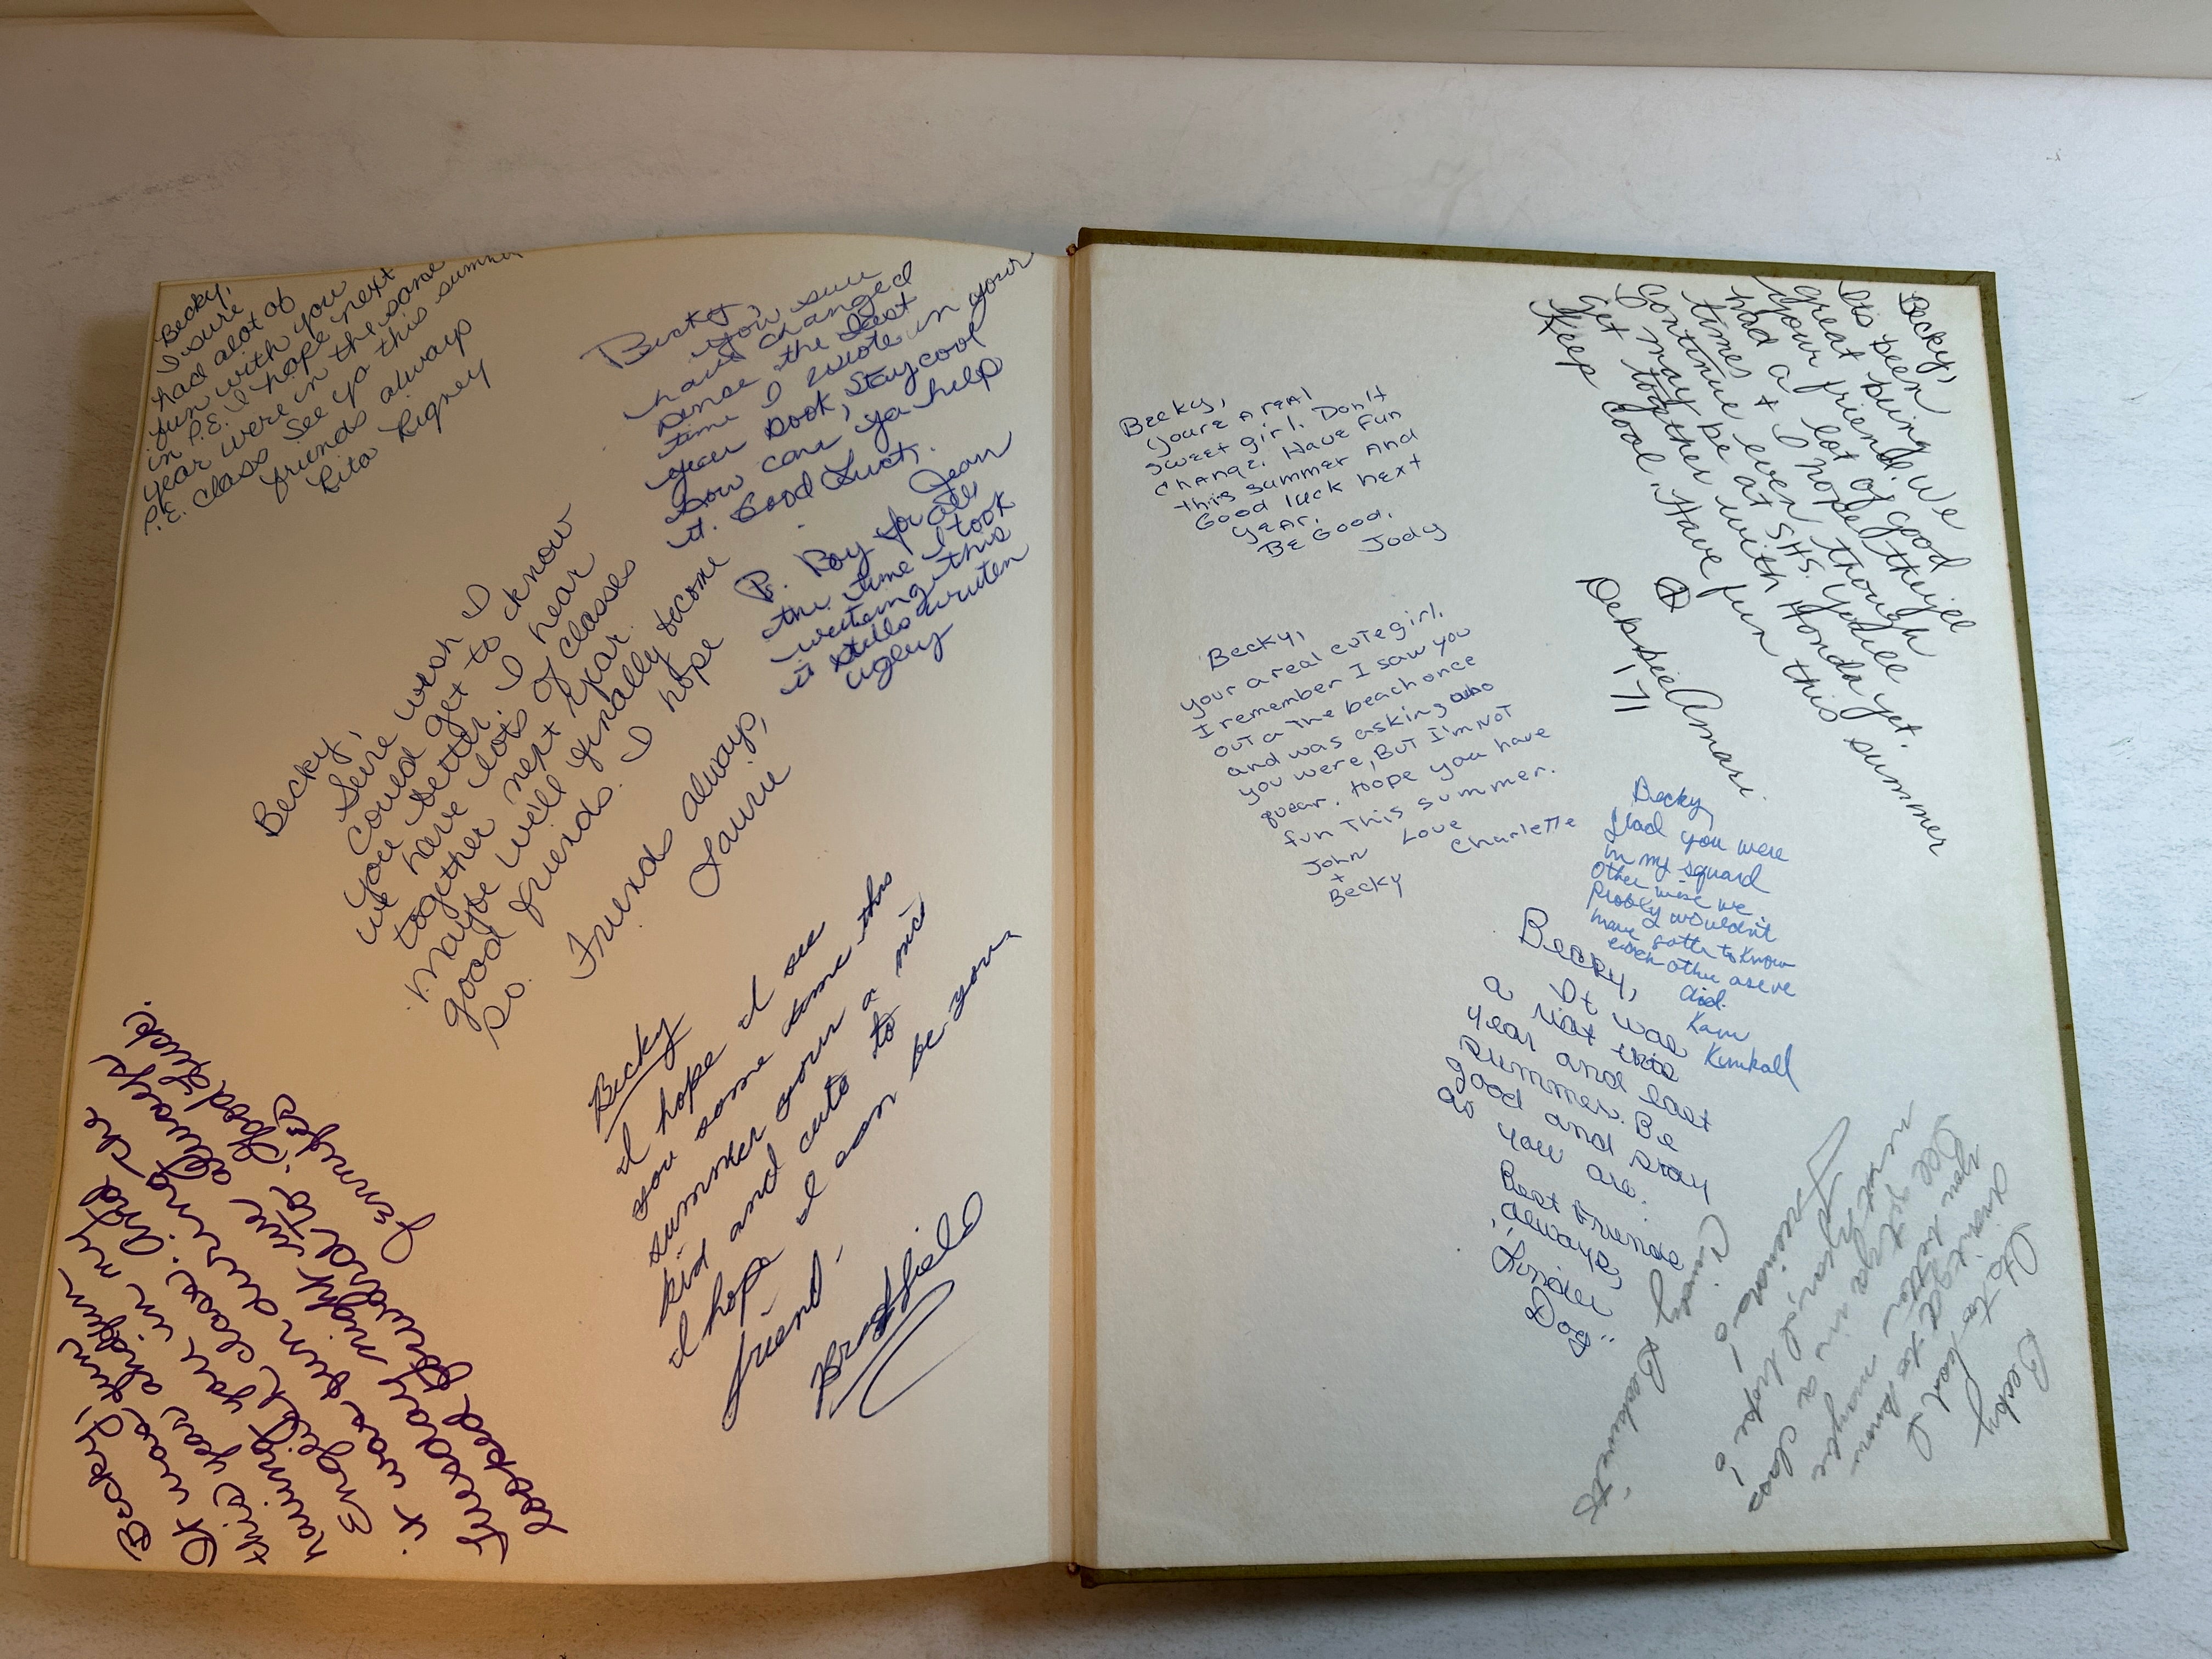 Becky,
I sure
had alot of
fun with you
in P.E. I hope next
year were in the same
P.E. class see ya this summer
friends always
Rita Rigney
Becky,
You sure
have changed
sense the last
time I wrote in your
year book, Stay cool
how can ya help
it. Good Luck.
Jean
Ps. Boy for all
the time I took
writing this
it stills writen
ugley
Becky,
Sure wish I
could get to know
you better. I hear
we have lots of classes
together next year.
Maybe will finally become
good friends. I hope
so.
Friends always,
Laurie
Becky
I hope I see
you some time this
summer your a nice
kid and cute to
I hope I can be your
friend.
Becky,
It was fun
this year in my
having class. And the
English during
it was fun always
tuesday night we
looped around to. Good Luck.
Becky,
youre a real
sweet girl. Don't
change. Have fun
this summer and
Good luck next
year.
Be Good.
Jody
Becky,
your a real cute girl.
I remember I saw you
out a the beach once
and was asking who
you were, But I'm not
quear. Hope you have
fun this summer.
Love
Charlette
John
+
Becky
Becky,
Its been
great being
your friend. We
had a lot of good
times & I hope they'll
continue even though
I may be at SHS. You'll
get together with Honda yet.
Keep cool. Have fun this summer
Debbie Amari
'71
Becky,
Glad you were
in my squard
Other wise we
probly wouldn't
have gotta to know
each other as we
did.
Kam
Kimball
Becky,
It was
a riot this
year and last
summer. Be
good and stay
as you are.
Best friends
always,
Linder
Dog"
Becky
Its to bad I
didn't get to know
you better maybe
I'll get ya in a class
next year, I hope!
Friends!
Cindy